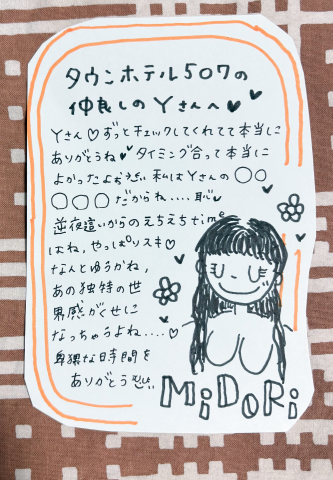 タウンホテル507の
仲良しのYさんへ♥
Yさん♡ずっとチェックしてくれてて本当に
ありがとうね♥タイミング合って本当に
よかったよぉ 私はYさんの〇〇
〇〇〇だからね....恥♥
逆夜這いからのえちえちtime
はね、やっぱりスキ♡
なんとゆうかね,
あの独特の世
界感がくせに
なっちゃうよね....♡
卑猥な時間を
ありがとう
MiDORi